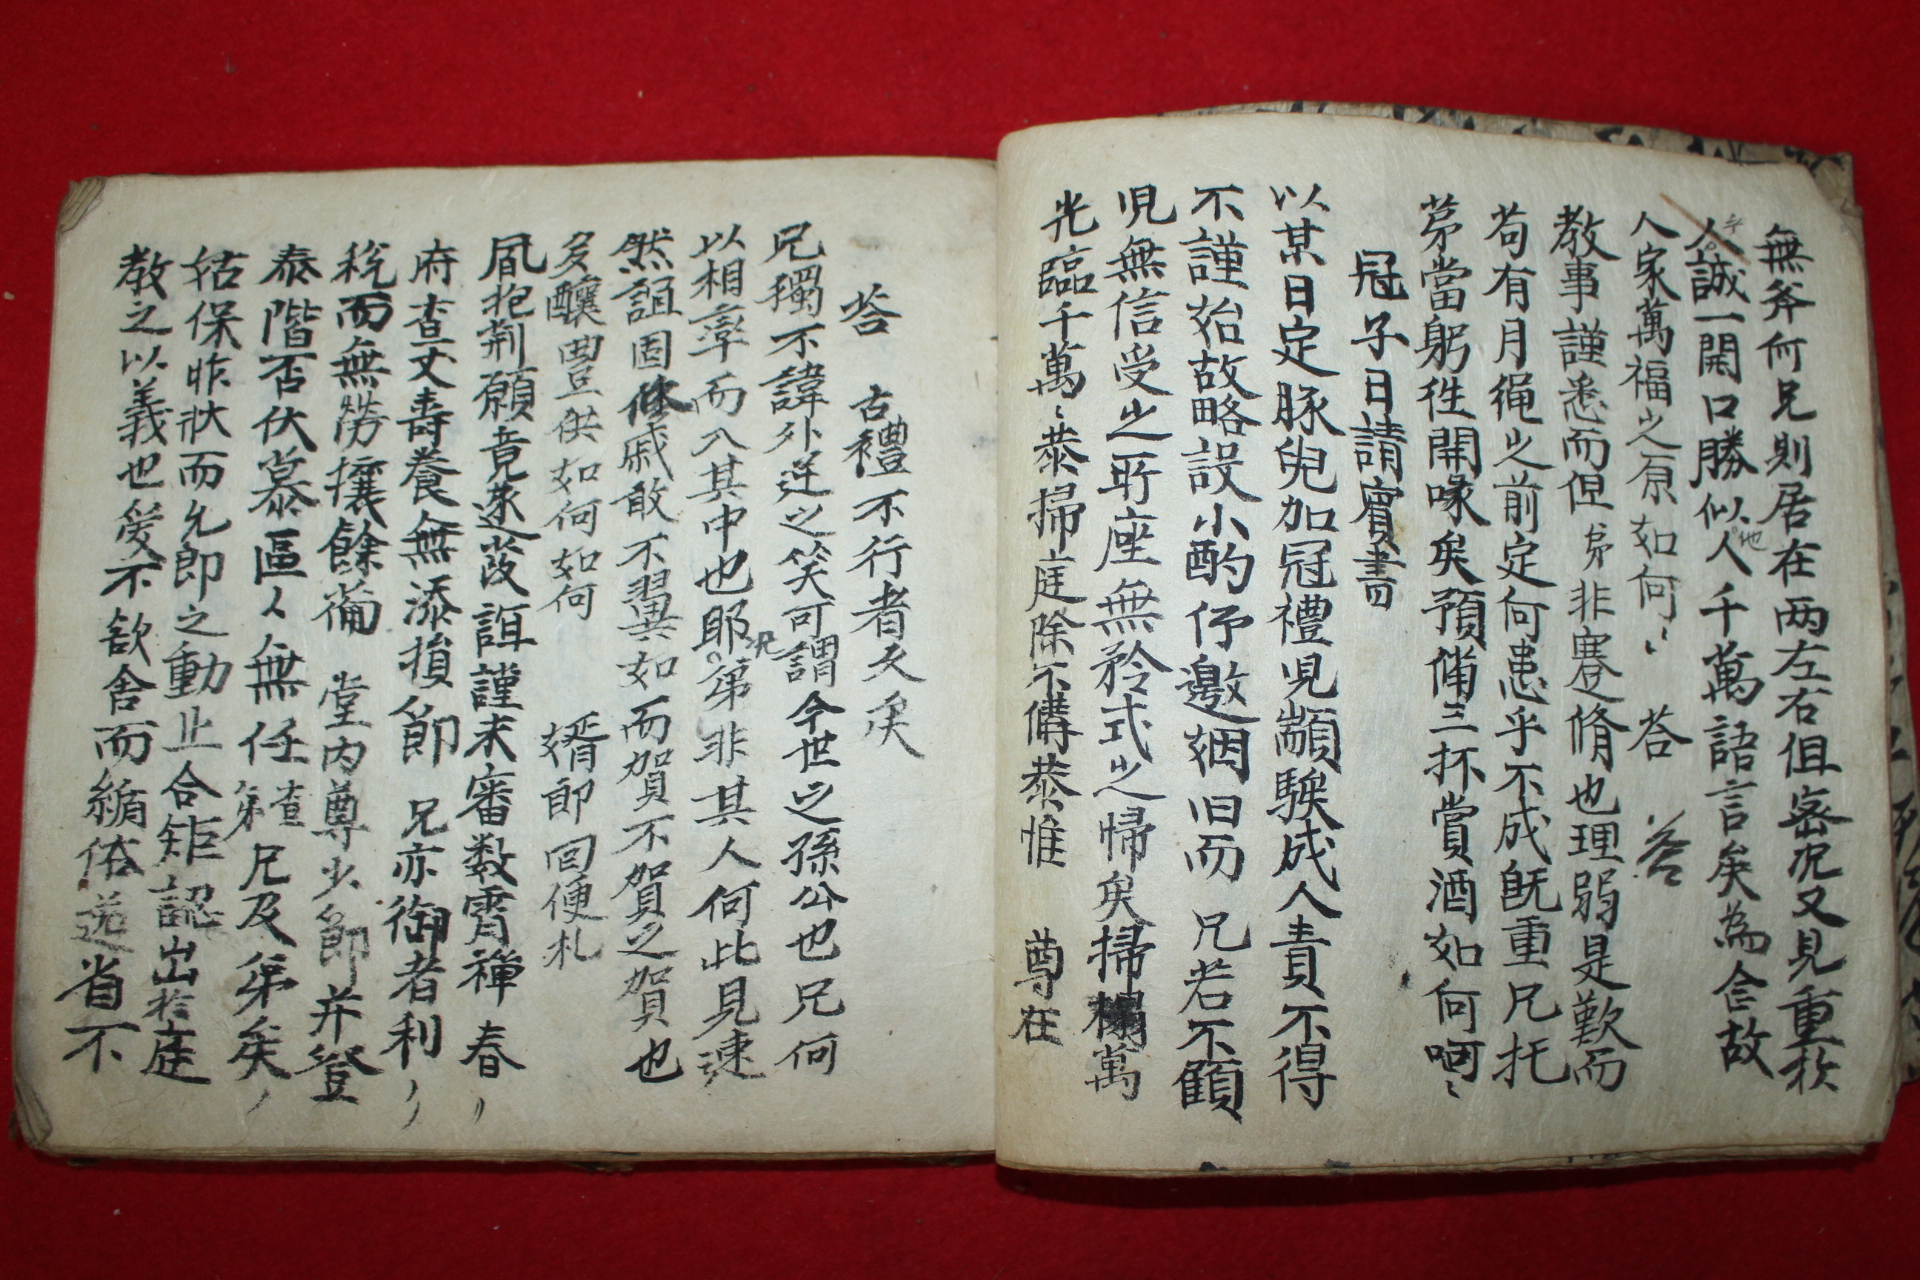 無斧何兄則居在两左右但密况又見重於
人誠一開口勝似他人千萬語言矣為合故
人家萬福之原如何〻 答 答
教事謹悉而但弟非蹇脩也理弱是歎而
苟有月繩之前定何患乎不成旣重兄托
苐當躬徃開喙矣預備三杯賞酒如何呵〻
冠子日請賓書
以某日定豚兒加冠禮児顓騃成人責不得
不謹始故略設小酌伻邀姻旧而 兄若不顧
児無信受之所座無矜式之帰矣掃榻萬
光臨千萬〻恭掃庭除不備恭惟 尊在
答 古禮不行者久矣
兄獨不諱外逆之笑可謂今世之孫公也兄何
以相率而入其中也耶弟非其人何此見速
然誼固休戚敢不翼如而賀不賀之賀也
多釀豊供如何如何 婿郎回便札
凮抱荆願竟遂葭誼謹未審数霄禅 春
府查丈壽養無添損節 兄亦御者利
稅而無勞攘餘萹 堂内尊少節并登
泰階否伏慕區〻無任 弟查兄及弟矣
姑保昨狀而允郎之動止合矩認出於庭
教之以義也愛不欲舍而循俗送省不